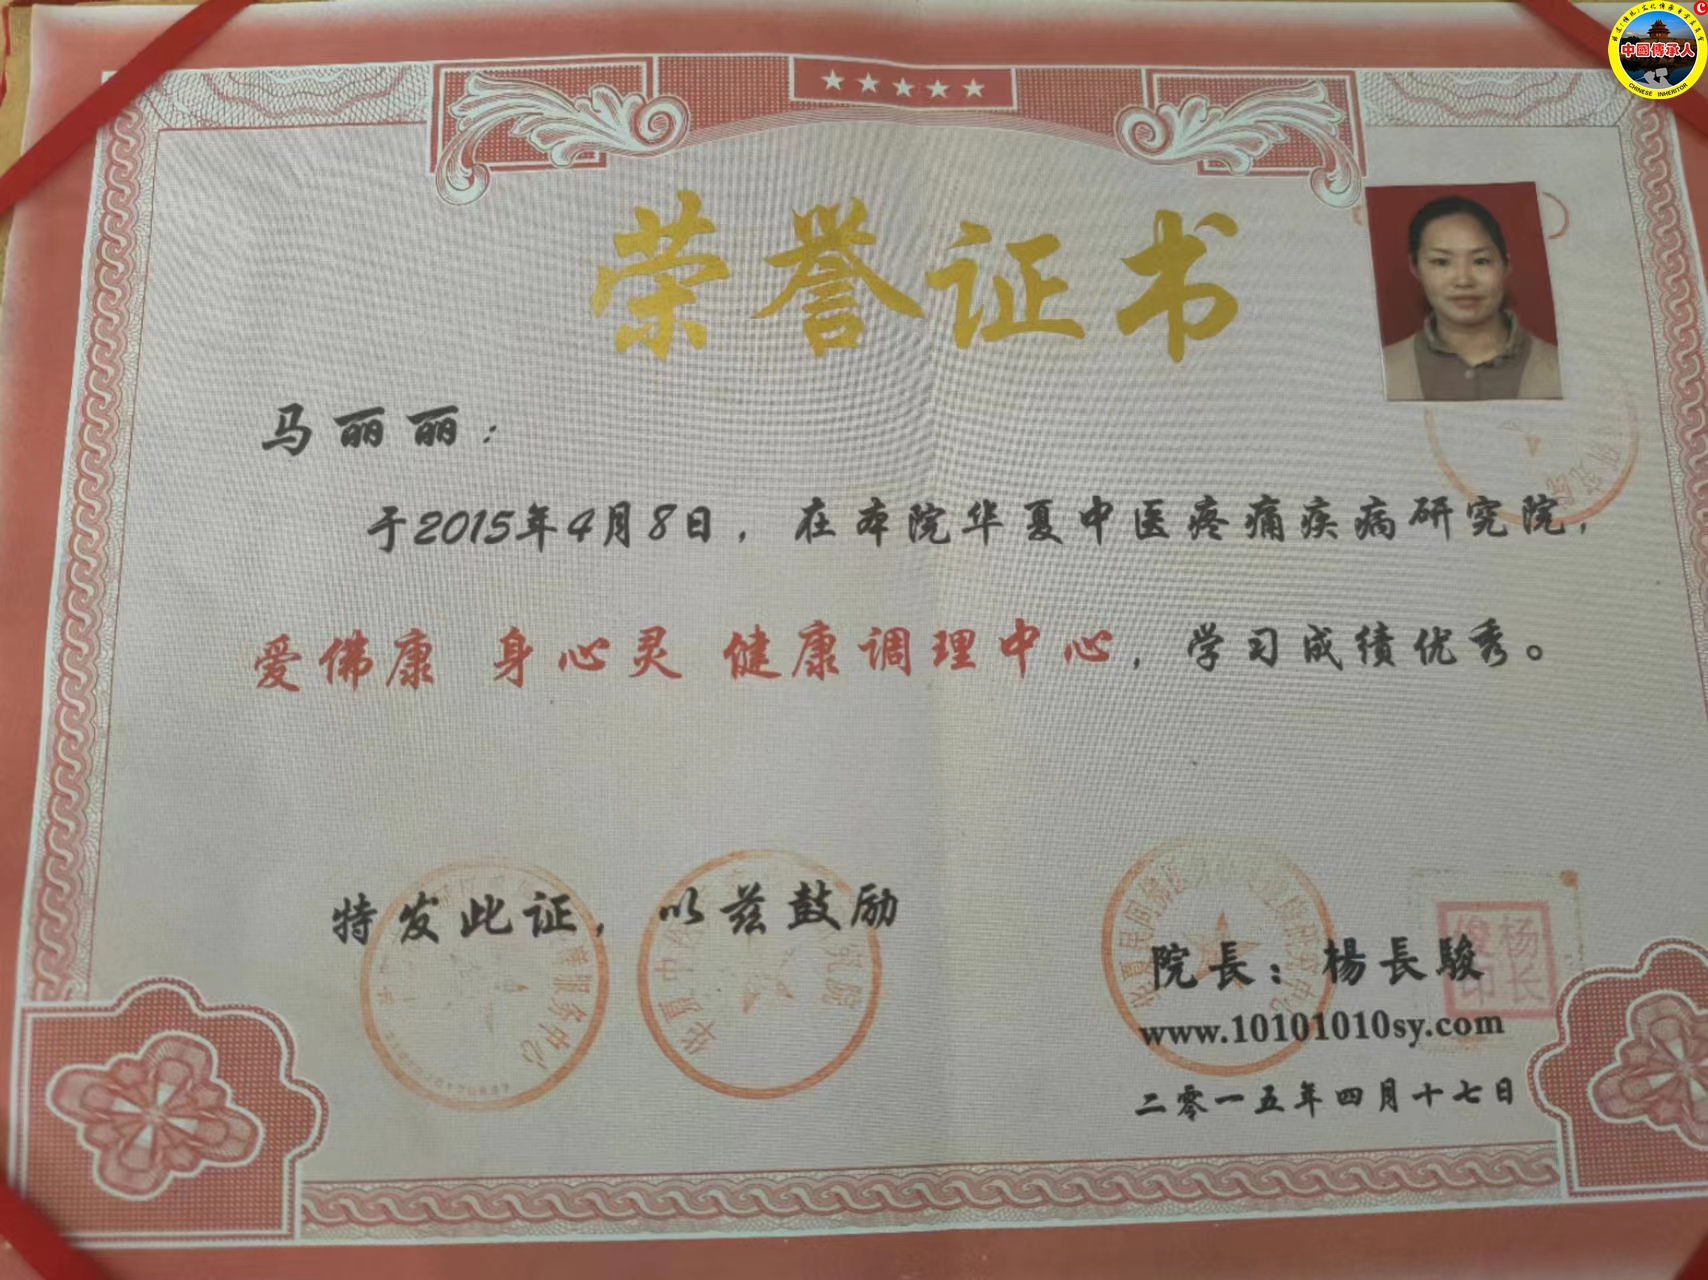 中國傳承人
CHINESE INHERITOR
荣誉证书
马丽丽：
于2015年4月8日，在本院华夏中医疼痛疾病研究院，
爱佛康 身心灵 健康调理中心，学习成绩优秀。
特发此证，以兹鼓励
院長：楊長駿
www.10101010sy.com
二零一五年四月十七日